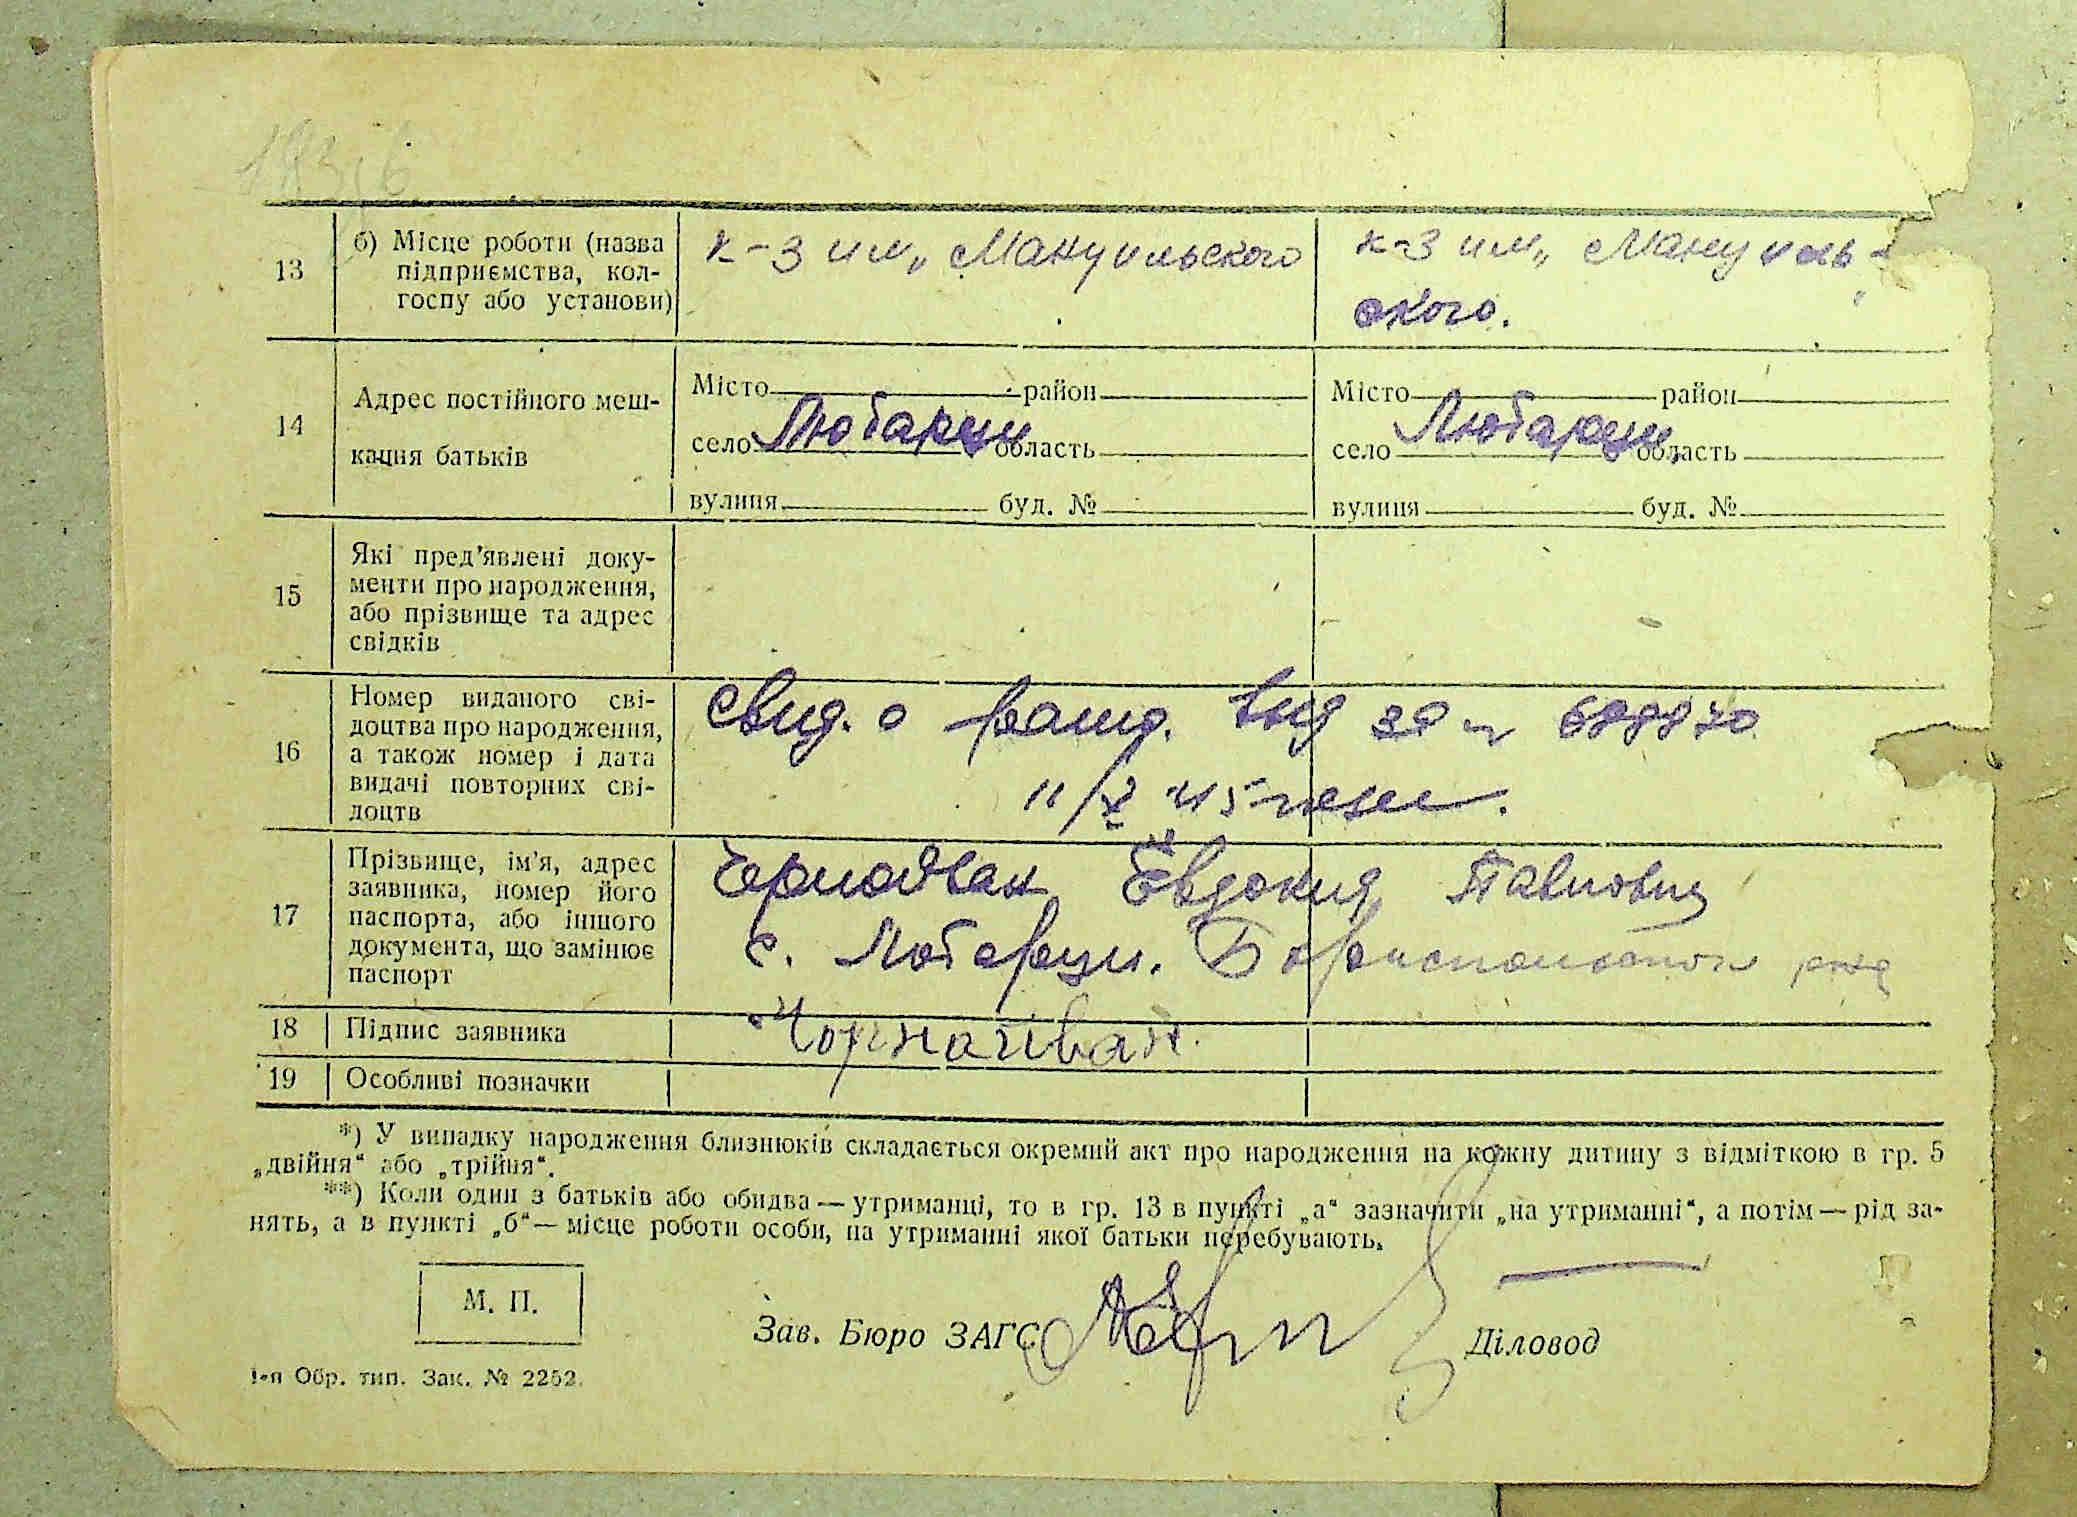 13
б) Місце роботи (назва
підприємства, кол-
госпу або установи)
к-з им „Мануильского
к-з им „ Мануиль-
ского.
14
Адрес постійного меш-
кання батьків
Місто район
село Любарцы область
вулиця буд. №
Місто район
село Любарцы область
вулиця буд. №
15
Які пред’явлені доку-
менти про народження,
або прізвище та адрес
свідків
16
Номер виданого сві-
доцтва про народження,
а також номер і дата
видачі повторних сві-
доцтв
Свид. о
11/X 45
17
Прізвище, ім’я, адрес
заявника, номер його
паспорта, або іншого
документа, що замінює
паспорт
Евдокия Павловна
с. Любарцы. Бориспольского р-на
18
Підпис заявника
19
Особливі позначки
*) У випадку народження близнюків складається окремий акт про народження на кожну дитину з відміткою в гр. 5
„двійня“ або „трійня“.
**) Коли один з батьків або обидва — утриманці, то в гр. 13 в пункті „а“ зазначити „на утриманні“, а потім — рід за-
нять, а в пункті „б“ — місце роботи особи, на утриманні якої батьки перебувають.
М. П.
Зав. Бюро ЗАГС
Діловод
1-а Обр. тип. Зак. № 2252.